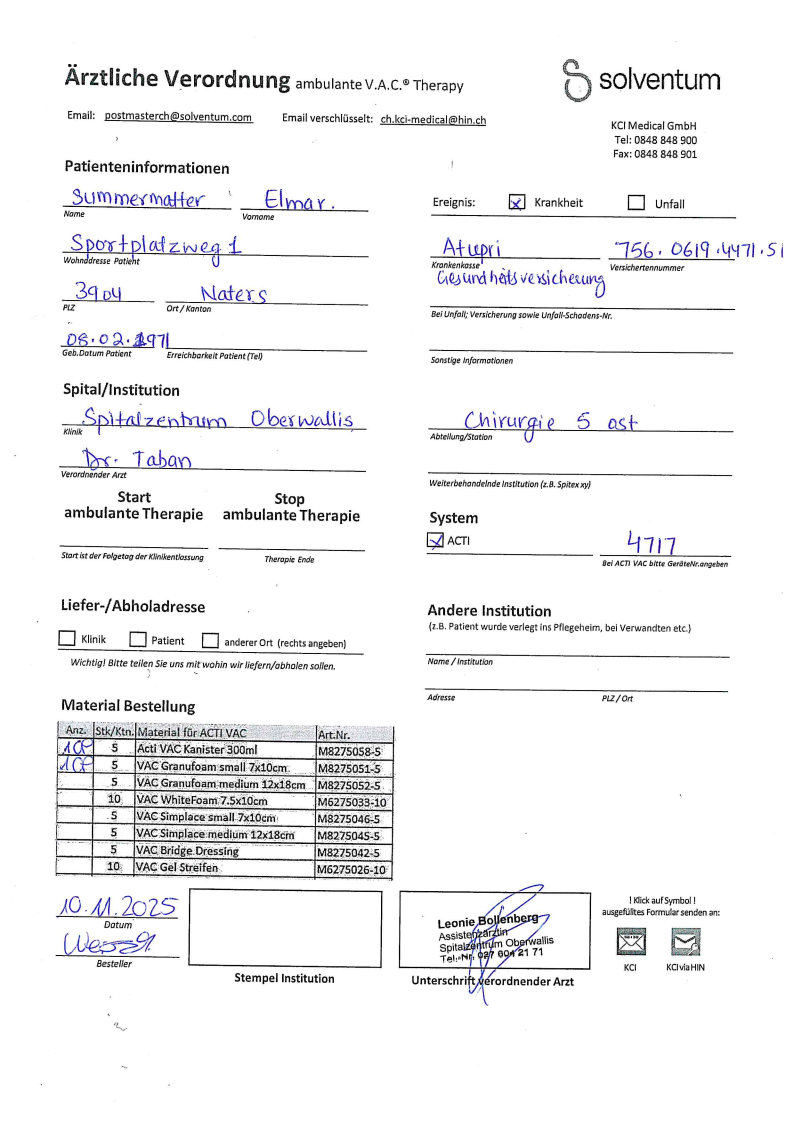 Ärztliche Verordnung ambulante V.A.C.® Therapy
solventum
Email: postmasterch@solventum.com Email verschlüsselt: ch.kci-medical@hin.ch
KCI Medical GmbH
Tel: 0848 848 900
Fax: 0848 848 901
Patienteninformationen
Summermatter Elmar.
Name Vorname
Ereignis: Krankheit Unfall
Sportplatzweg 1
Wohnddresse Patient
Atupri 756.0619.4471.51
Krankenkasse Versichertennummer
Gesundheitsversicherung
3904 Naters
PLZ Ort / Kanton
Bei Unfall; Versicherung sowie Unfall-Schadens-Nr.
08.02.1971
Geb.Datum Patient Erreichbarkeit Patient (Tel)
Sonstige Informationen
Spital/Institution
Spitalzentrum Oberwallis
Klinik
Chirurgie 5 ost
Abteilung/Station
Dr. Taban
Verordnender Arzt
Weiterbehandelnde Institution (z.B. Spitex xy)
Start ambulante Therapie
Stop ambulante Therapie
Start ist der Folgetag der Klinikentlassung Therapie Ende
System
ACTI 4717
Bei ACTI VAC bitte GeräteNr.angeben
Liefer-/Abholadresse
Klinik Patient anderer Ort (rechts angeben)
Wichtig! Bitte teilen Sie uns mit wohin wir liefern/abholen sollen.
Andere Institution
(z.B. Patient wurde verlegt ins Pflegeheim, bei Verwandten etc.)
Name / Institution
Adresse PLZ / Ort
Material Bestellung
Anz. Stk/Ktn. Material für ACTI VAC Art.Nr.
5 Acti VAC Kanister 300ml M8275058-5
5 VAC Granufoam small 7x10cm M8275051-5
5 VAC Granufoam medium 12x18cm M8275052-5
10 VAC WhiteFoam 7.5x10cm M6275033-10
5 VAC Simplace small 7x10cm M8275046-5
5 VAC Simplace medium 12x18cm M8275045-5
5 VAC Bridge Dressing M8275042-5
10 VAC Gel Streifen M6275026-10
10.11.2025
Datum
Besteller
Stempel Institution
Leonie Bollenberg
Assistenzärztin
Spitalzentrum Oberwallis
Tel.-Nr. 027 604 21 71
Unterschrift verordnender Arzt
! Klick auf Symbol !
ausgefülltes Formular senden an:
KCI KCI via HIN